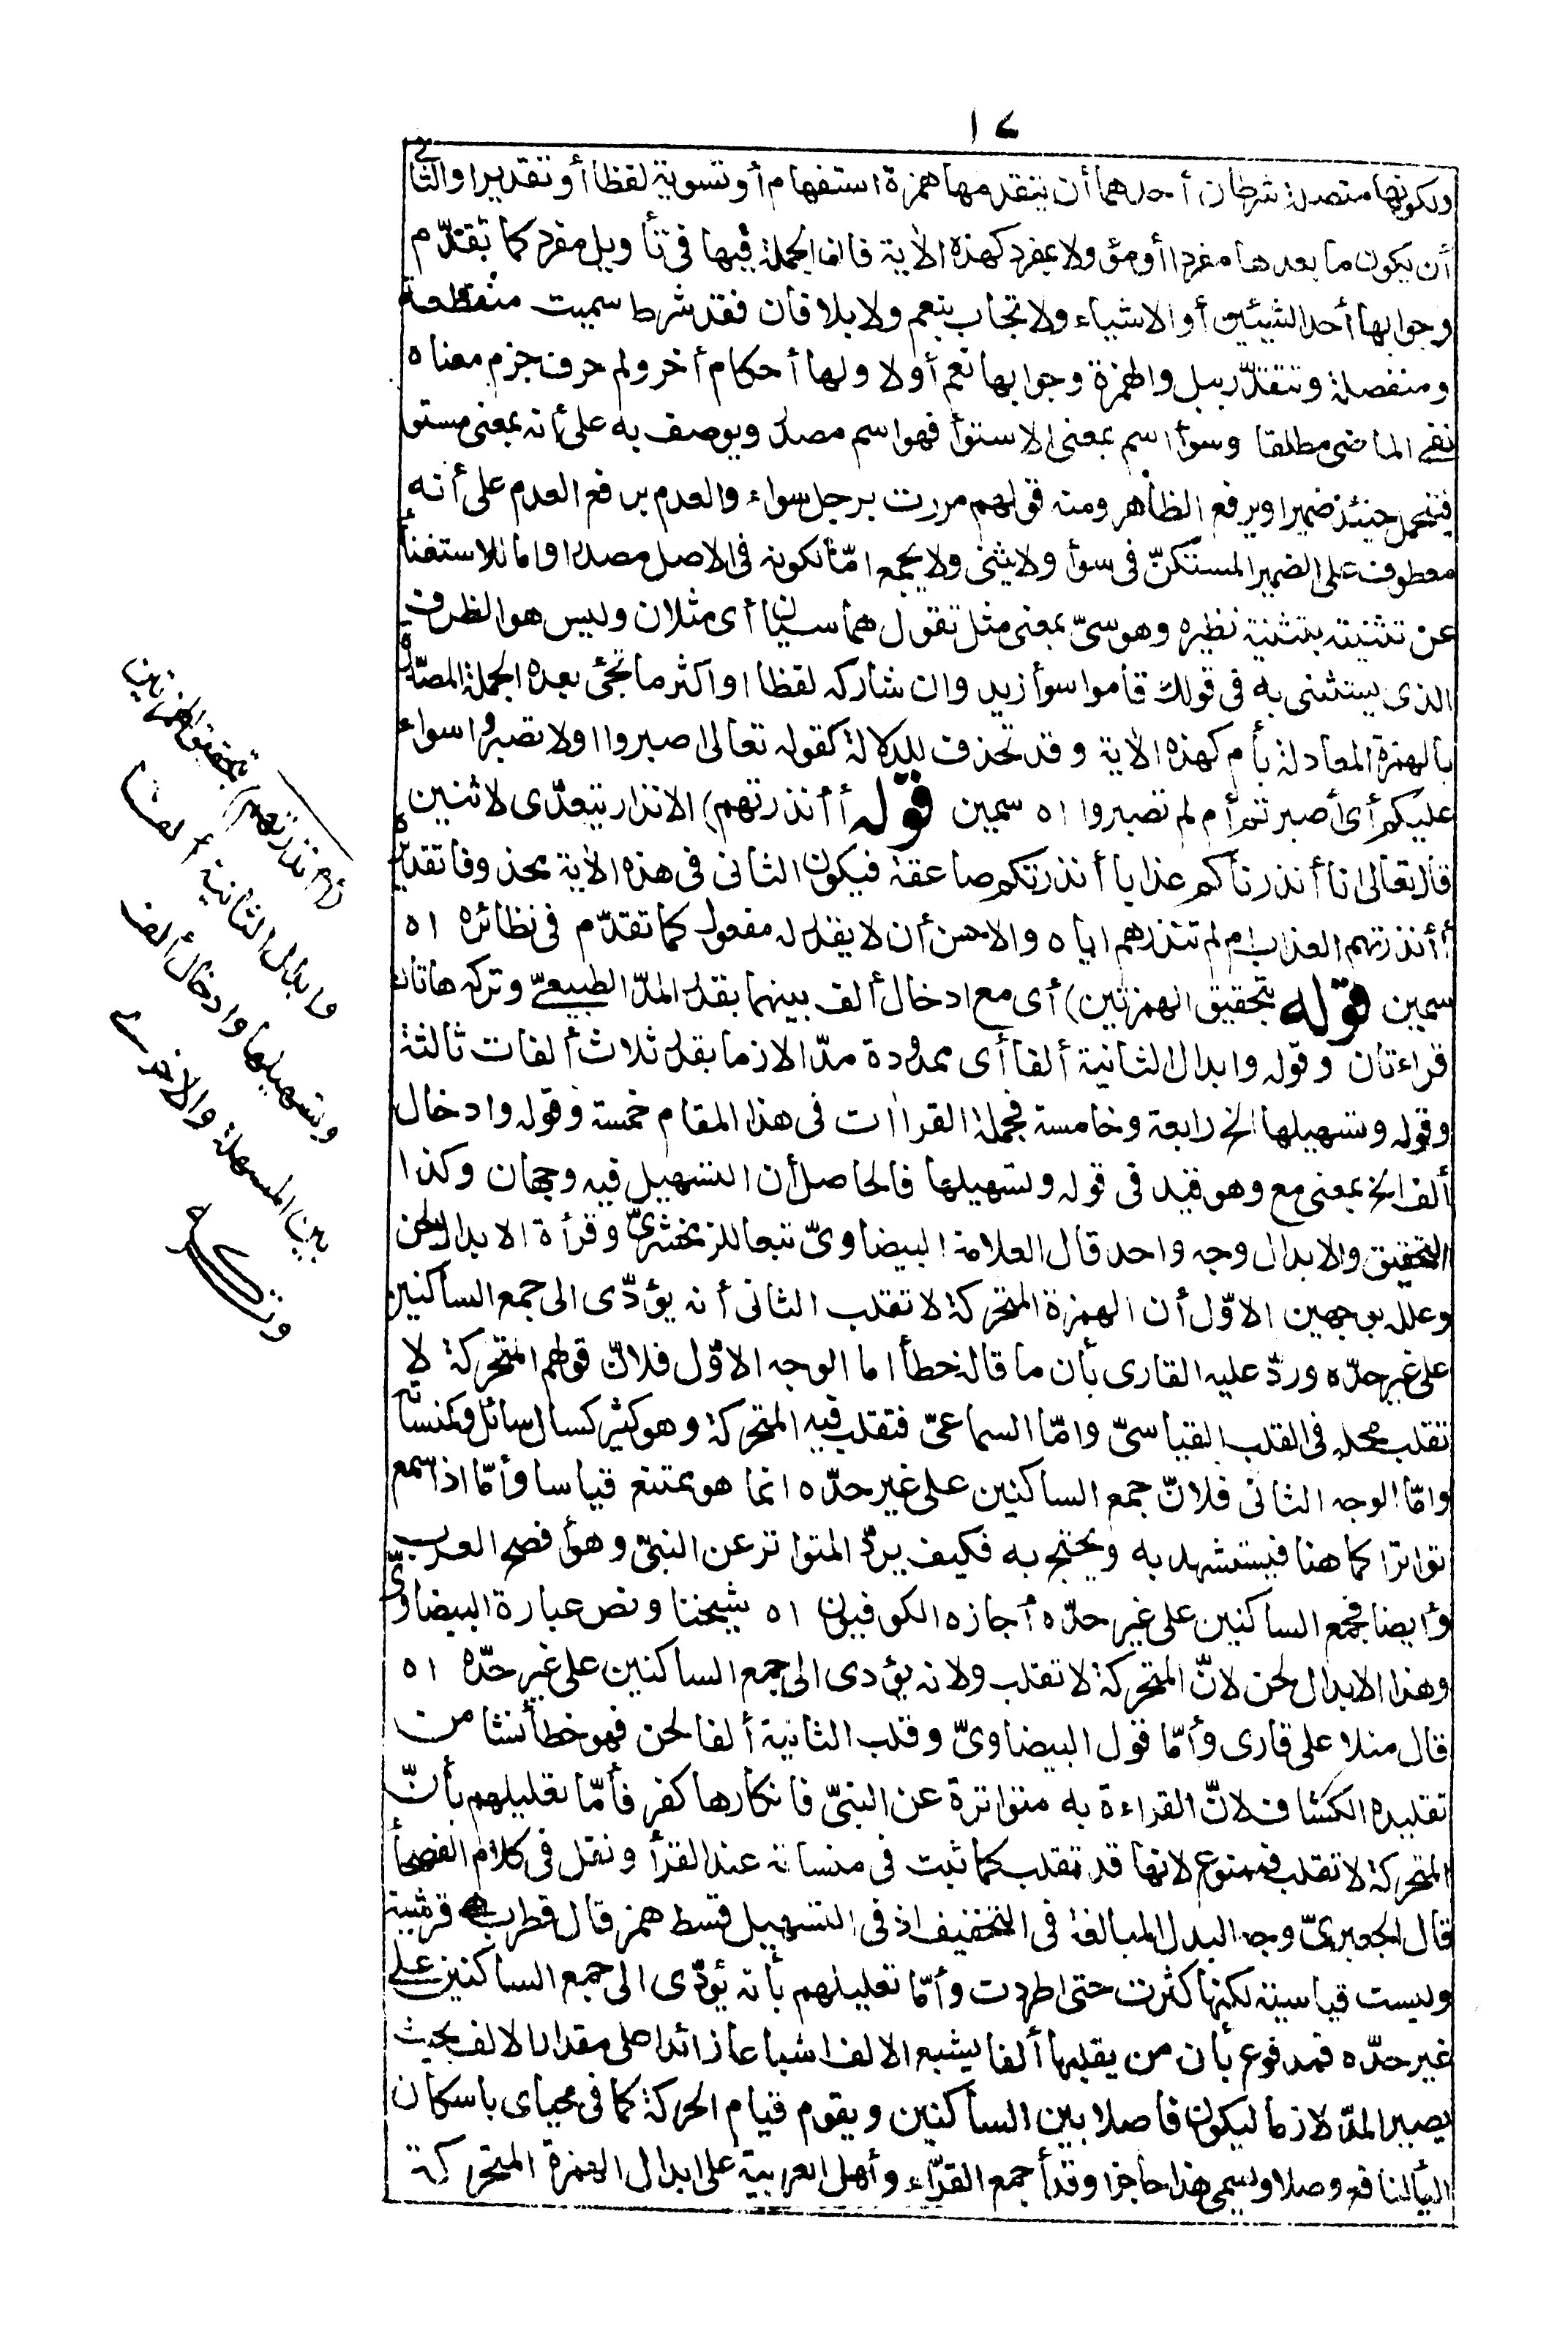 ١٧
ولكونها متصلة شرطان أحدهما أن يتقدمها همزة استفهام أو تسوية لفظا أو تقديرا والثانى
أن يكون ما بعدها مفردا أو مؤولا بمفرد كهذه الأية فان الجملة فيها فى تأويل مفرد كما تقدّم
وجوابها أحد الشيئين أو الاشياء ولا تجاب بنعم ولا بلا فان فقد شرط سميت منقطعة
ومنفصلة وتتقدّر ببل والهمزة وجوابها نعم أو لا ولها أحكام أخر ولم حرف جزم معناه
نفى الماضى مطلقا وسوأ اسم بمعنى الاستوأ فهو اسم مصدر ويوصف به على أنه بمعنى مستو
فيتحمل حينئذ ضميرا ويرفع الظاهر ومنه قولهم مررت برجل سواء والعدم برفع العدم على أنه
معطوف على الضمير المستكنّ فى سوأ ولا يثنى ولا يجمع امّا لكونه فى الاصل مصدرا واما للاستغنأ
عن تثنيته بتثنية نظيره وهو سىّ بمعنى مثل تقول هما سيان أى مثلان وليس هو الظرف
الذى يستثنى به فى قولك قاموا سوأ زيد وان شاركه لفظا واكثر ما تجئ بعده الجملة المصدّرة
بالهمزة المعادلة بأم كهذه الأية وقد تحذف للدلالة كقوله تعالى اصبروا اولا تصبروا سواء
عليكم أى أصبرتم أم لم تصبروا اه سمين قوله أأنذرتهم) الانذار يتعدّى لاثنين
قال تعالى انا أنذرناكم عذابا أنذرتكم صاعقة فيكون الثانى فى هذه الأية محذوفا تقديره
أأنذرتهم العذاب أم لم تنذرهم اياه والاحسن أن لا يقدر له مفعول كما تقدّم فى نظائره اه
سمين قوله بتحقيق الهمزتين) أى مع ادخال ألف بينهما بقدر المدّ الطبيعىّ وتركه هاتان
قراءتان وقوله وابدال الثانية ألفا أى ممدودة مدّا لازما بقدر ثلاث ألفات ثالثة
وقوله وتسهيلها الخ رابعة وخامسة فجملة القراات فى هذا المقام خمسة وقوله وادخال
ألف الخ بمعنى مع وهو قيد فى قوله وتسهيلها فالحاصل أن التسهيل فيه وجهان وكذا
التحقيق والابدال وجه واحد قال العلامة البيضاوىّ تبعا للزمخشرىّ وقرأة الابدال لحن
وعلله بوجهين الاوّل أن الهمزة المتحركة لا تقلب الثانى أنه يؤدّى الى جمع الساكنين
على غير حدّه وردّ عليه القارى بأن ما قاله خطأ اما الوجه الاوّل فلانّ قولهم المتحركة لا
تقلب محله فى القلب القياسىّ وامّا السماعىّ فتقلب فيه المتحركة وهو كثير كسال سائل وكمنسأته
وامّا الوجه الثانى فلانّ جمع الساكنين على غير حدّه انما هو يمتنع قياسا وأمّا اذا سمع
تواترا كما هنا فيستشهد به ويحتج به فكيف يردّ المتواتر عن النبىّ وهو أفصح العرب
وأيضا فجمع الساكنين على غير حدّه أجازه الكوفيون اه شيخنا ونص عبارة البيضاوىّ
وهذا الابدال لحن لانّ المتحركة لا تقلب ولانه يؤدى الى جمع الساكنين على غير حدّه اه
قال منلا على قارى وأمّا قول البيضاوىّ وقلب الثانية ألفا لحن فهو خطأ نشا من
تقليده الكشاف لانّ القراءة به متواترة عن النبىّ فانكارها كفر فأمّا تعليلهم بأنّ
المتحركة لا تقلب فممنوع لانها قد تقلب كما ثبت فى منساته عند القرأ ونقل فى كلام الفصحأ
قال الجعبرىّ وجه البدل المبالغة فى التخفيف اذ فى التسهيل قسط همز قال قطرب قرشية
وليست قياسية لكنها كثرت حتى اطردت وأمّا تعليلهم بأنه يؤدّى الى جمع الساكنين على
غير حدّه فمدفوع بأن من يقلبها ألفا يشبع الالف اشباعا زائدا على مقدار الالف بحيث
يصير المدّ لازما ليكون فاصلا بين الساكنين ويقوم قيام الحركة كما فى محياى باسكان
اليأ لنافع وصلا ويسمى هذا حاجزا وقد أجمع القرّاء وأهل العربية على ابدال الهمزة المتحركة
(أم تنذرهم) بتحقيق الهمزتين
وابدال الثانية ألفا
وتسهيلها وادخال ألف
بين المسهلة والاخرى
وتركه